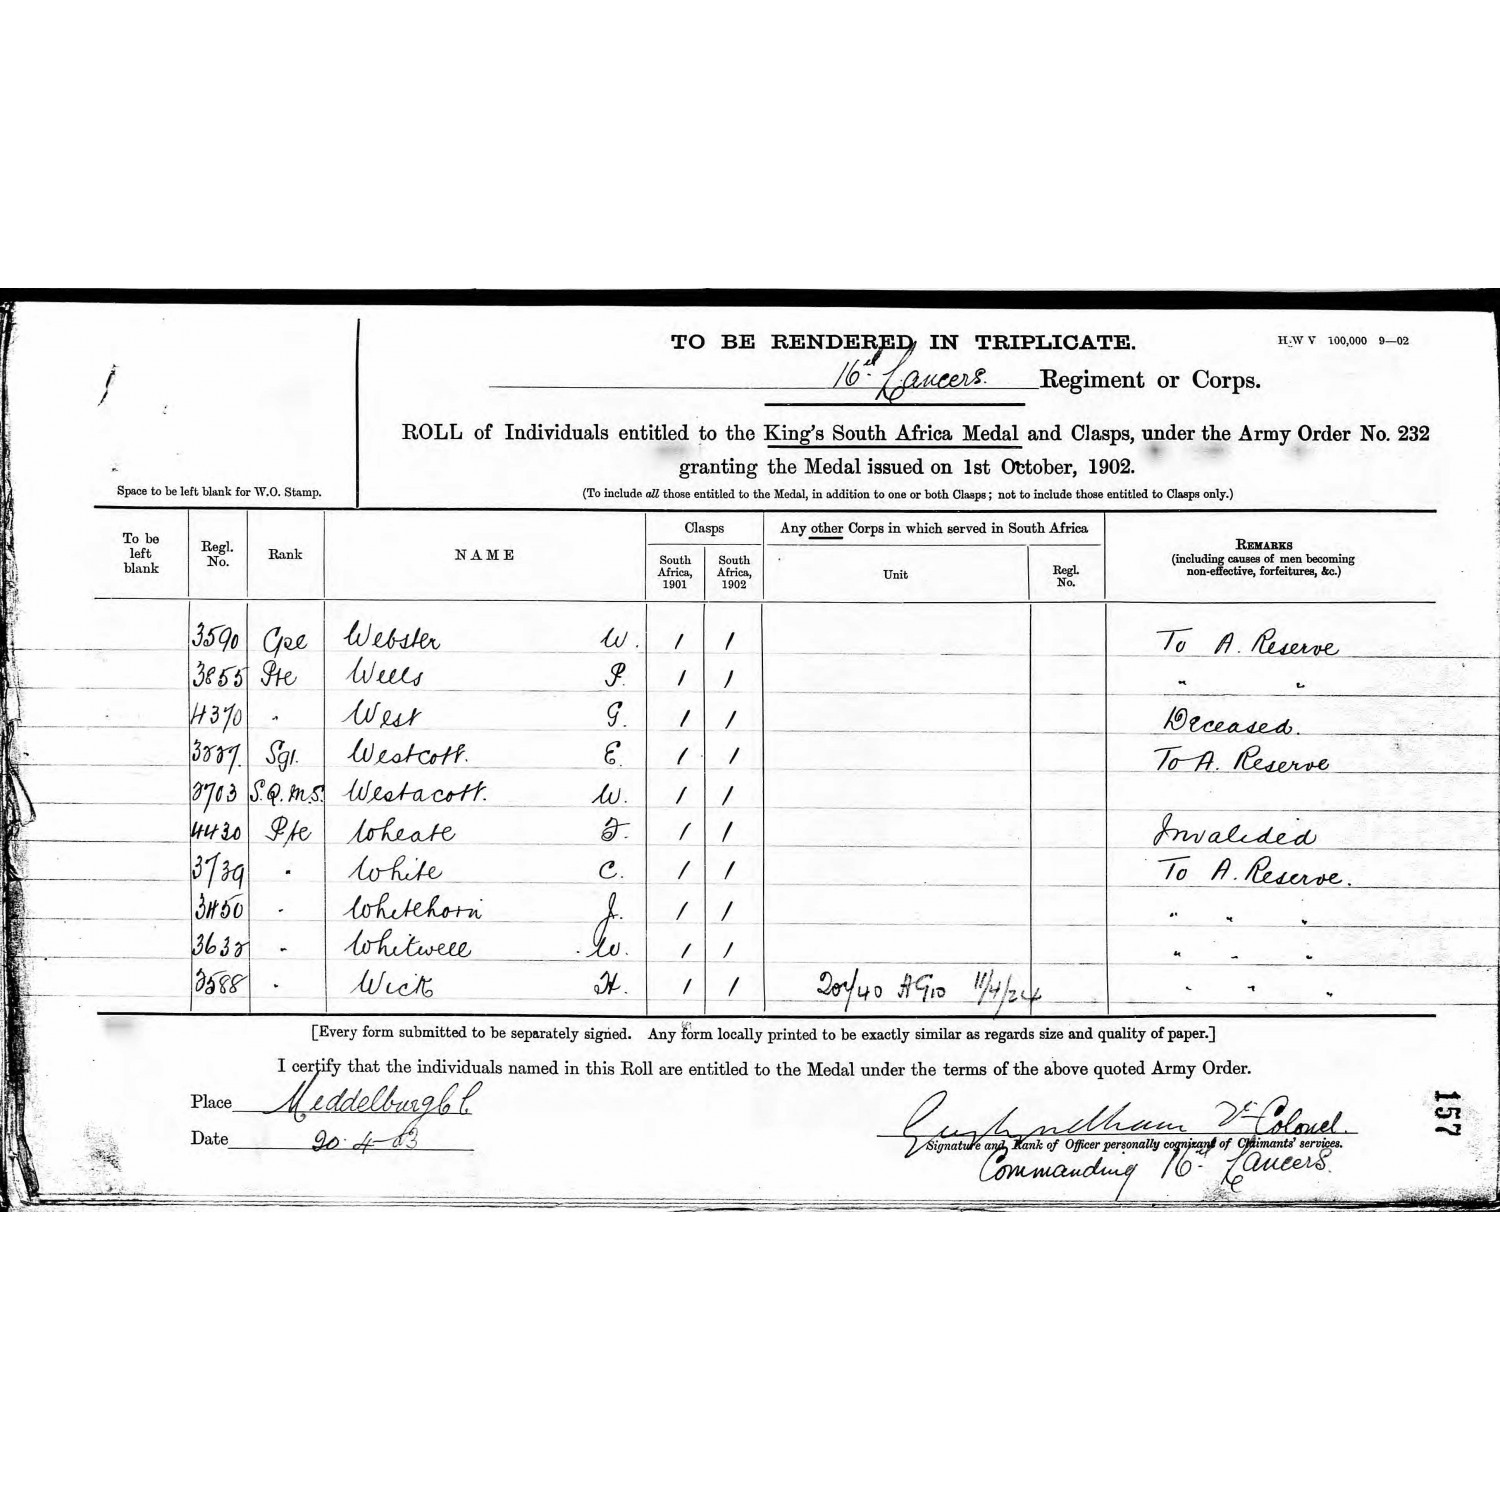 TO BE RENDERED IN TRIPLICATE.
H.W V 100,000 9—02
16th Lancers. Regiment or Corps.
ROLL of Individuals entitled to the King's South Africa Medal and Clasps, under the Army Order No. 232
granting the Medal issued on 1st October, 1902.
Space to be left blank for W.O. Stamp.
(To include all those entitled to the Medal, in addition to one or both Clasps; not to include those entitled to Clasps only.)
To be left blank Regl. No. Rank NAME Clasps South Africa, 1901 South Africa, 1902 Any other Corps in which served in South Africa Unit Regl. No. REMARKS (including causes of men becoming non-effective, forfeitures, &c.)
3590 Cpl Webster W. / / To A. Reserve
3855 Pte Wells P. / / " "
4370 " West G. / / Deceased.
Sgt. Westcott. E. / / To A. Reserve
3703 S.Q.M.S. Westacott. W. / /
4430 Pte Wheate F. / / Invalided
3739 " White C. / / To A. Reserve.
3450 " Whitehorn J. / / " " "
" Whitwell W. / / " " "
3588 " Wick H. / / 11/4/24 " " "
[Every form submitted to be separately signed. Any form locally printed to be exactly similar as regards size and quality of paper.]
I certify that the individuals named in this Roll are entitled to the Medal under the terms of the above quoted Army Order.
Place Middelburg C.C.
Date 20.4.03
Guy Wyndham Lt Colonel.
Signature and Rank of Officer personally cognizant of Claimants' services.
Commanding 16th Lancers.
157